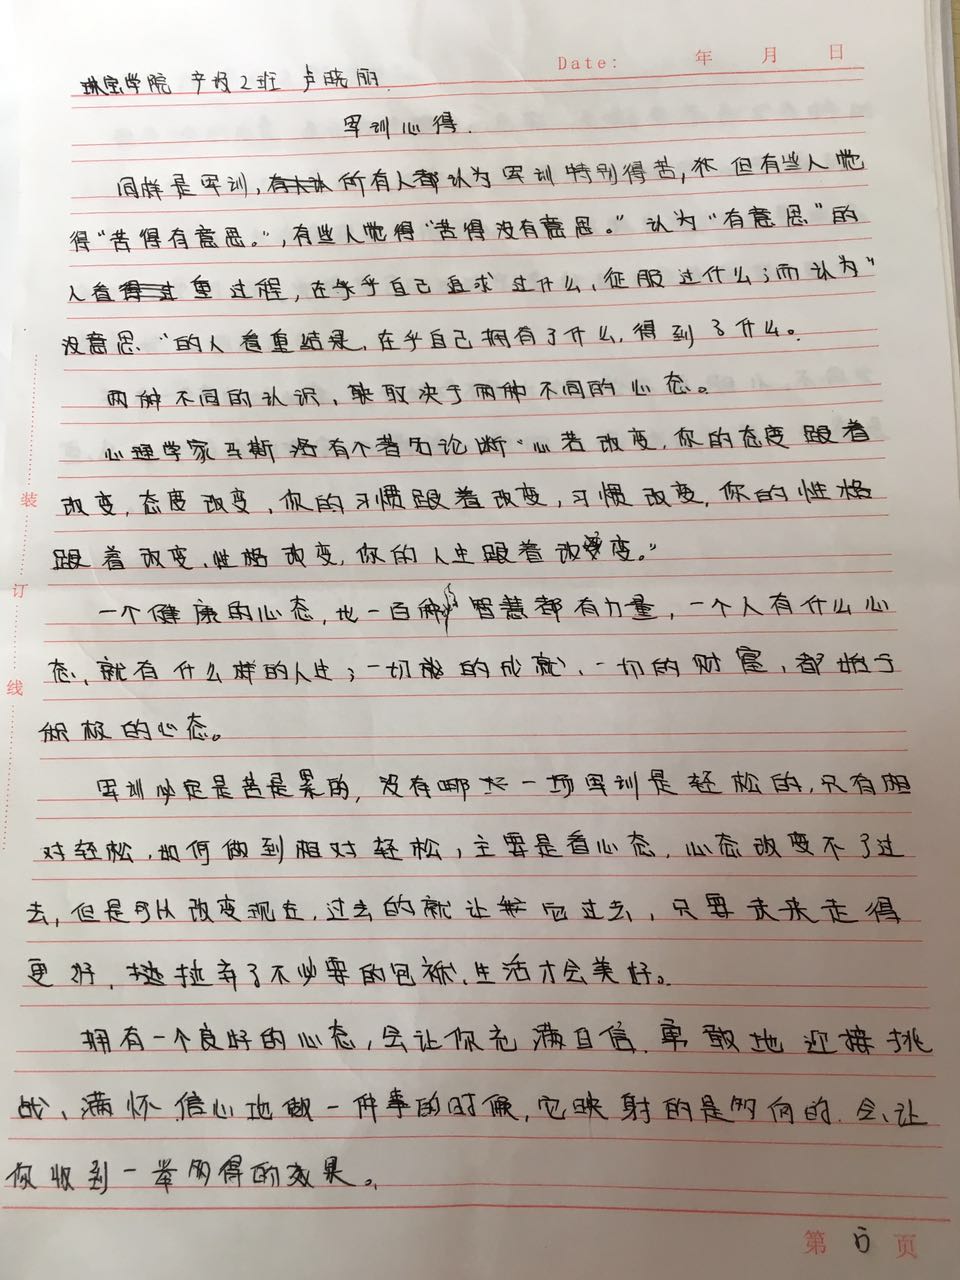 Date: 年 月 日
珠宝学院 产设2班 卢晓丽.
军训心得.
同样是军训,所有人都认为军训特别得苦,但有些人觉
得“苦得有意思。”,有些人觉得“苦得没有意思。”认为“有意思”的
人看重过程,在乎自己追求过什么,征服过什么;而认为“
没意思”的人看重结果,在乎自己拥有了什么,得到了什么。
两种不同的认识,取决于两种不同的心态。
心理学家马斯洛有个著名论断“心若改变,你的态度跟着
改变,态度改变,你的习惯跟着改变,习惯改变,你的性格
跟着改变,性格改变,你的人生跟着改变。”
一个健康的心态,比一百种智慧都有力量,一个人有什么心
态,就有什么样的人生;一切的成就,一切的财富,都始于
积极的心态。
军训必定是苦是累的,没有哪一场军训是轻松的,只有相
对轻松,如何做到相对轻松,主要是看心态,心态改变不了过
去,但是可以改变现在,过去的就让它过去,只要未来走得
更好,抛弃了不必要的包袱,生活才会美好。
拥有一个良好的心态,会让你充满自信,勇敢地迎接挑
战,满怀信心地做一件事的时候,它映射的是多向的,会让
你收到一举多得的效果。
装
订
线
第 页